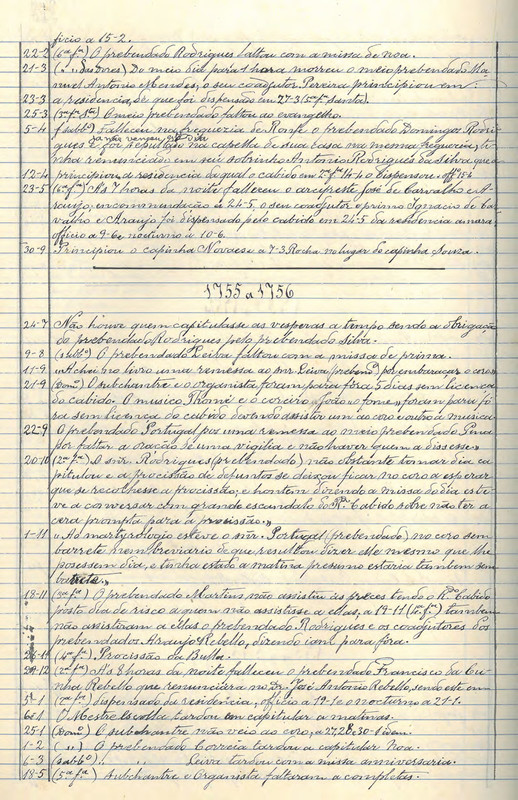 ficio a 15-2.
22-2 (6ª fª) O prebendado Rodrigues faltou com a missa de noa.
21-3 ( " das Dores) Do meio dia para 1 hora morreu o meio prebendado Ma-
nuel Antonio Mendes; o seu coadjutor Pereira principiou em
23-3 a residencia, de que foi dispensão em 27-3 (5ª fª Santa).
25-3 (3ª fª 8ª) O meio prebendado faltou ao evangelho.
5-4 (sabbº) Falleceu na freguezia de Ronfe o prebendado Domingos Rodri-
gues e foi sepultado na capella de sua casa na mesma freguezia; ti-
nha renunciado em seu sobrinho Antonio Rodrigues da Silva que a
12-4 principiou a residencia da qual o cabido em 2ª fª 14-4 o dispensou
23-5 (6ª fª) A's 7 horas da noite falleceu o arcipreste José de Carvalho e A-
raujo, encommendação a 24-5. o seu coadjutor o primo Ignacio de Car-
valho e Araujo foi dispensado pelo cabido em 24-5 da residencia
officio a 9-6 e nocturno a 10-6.
30-9 Principiou o capinha Novaes e a 7-3 Rocha no lugar do capinha Souza.
1755 a 1756
24-7 Não houve quem capitulasse as vesperas a tempo sendo a obrigação
do prebendado Rodrigues pelo prebendado Silva.
9-8 (sabbº) O prebendado Leiva faltou com a missa de prima.
11-9 «Achei no livro uma remessa ao snr. Leiva (prebendº) por embaraçar o coro»
21-9 (Domº) O subchantre e o organista foram para fóra 5 dias sem licença
do cabido. O musico Thomé e o coreiro «João o fome» foram para fó-
ra sem licença do cabido devendo assistir um ao coro e outro á musica
22-9 O prebendado Portugal poz uma remessa ao meio prebendado Pena
por faltar a oração de uma vigilia e não haver quem a dissesse»
20-10 (2ª fª) «O snr. Rodrigues (prebendado) não obstante tomar dia ca-
pitulou e a procissão de defuntos se deixou ficar no coro a esperar
que se recolhesse a procissão; e hontem dizendo a missa do dia este-
ve a conversar com grande escandalo do Rº Cabido sobre não ter a
cera prompta para a procissão.»
1-11 «Ao martyrologio esteve o snr. Portugal (prebendado) no coro sem
barrete nem breviario de que resultou dizer elle mesmo que lhe
posessem dia, e tinha estado a matina presumo estaria tambem sem
barrete.»
18-11 (3ª fª) O prebendado Martins não assistiu ás preces tendo o Rdº Cabido
posto dia de risco a quem não assistisse a ellas, a 19-11 (4ª fª) tambem
não assistiram a ellas o prebendado Rodrigues e os coadjutores dos
prebendados Araujo e Rebello, dizendo iam para fóra.
(4ª fª) Procissão da Bulla.
29-12 (2ª fª) A's 8 horas da noite falleceu o prebendado Francisco da Cu-
nha Rebello que renunciára no Dr. José Antonio Rebello, sendo este em
dispensado da residencia, officio a 19-1 e nocturno a 21-1.
O Mestre Escolla tardou em capitular a matinas.
25-1 (Domº) O subchantre não veio ao coro, a 27, 28 e 30-1 idem.
1-2 ( " ) O prebendado Correia tardou a capitular Noa.
6-3 (sabbº) " " Leiva tardou com a missa anniversaria.
18-5 (5ª fª) Subchantre e Organista faltaram a completas.